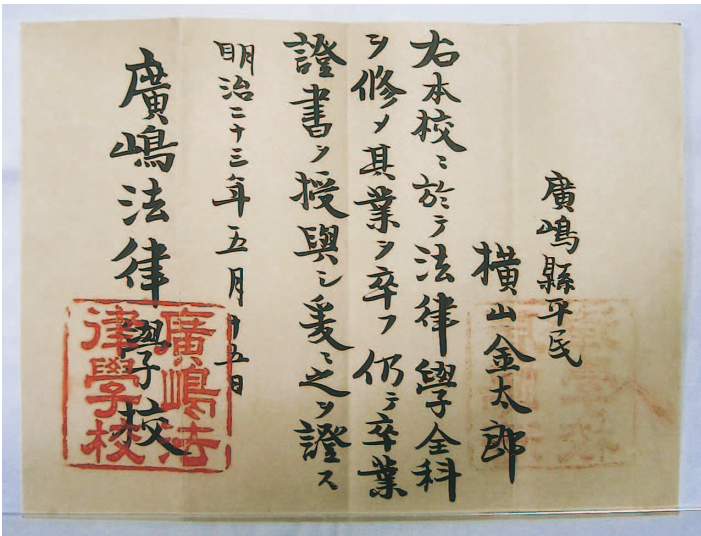 廣嶋縣平民
橫山金太郎
右本校ニ於テ法律學全科
ヲ修メ其業ヲ卒フ仍テ卒業
證書ヲ授與シ爰ニ之ヲ證ス
明治二十三年五月十五日
廣嶋法律學校
廣嶋法
律學校